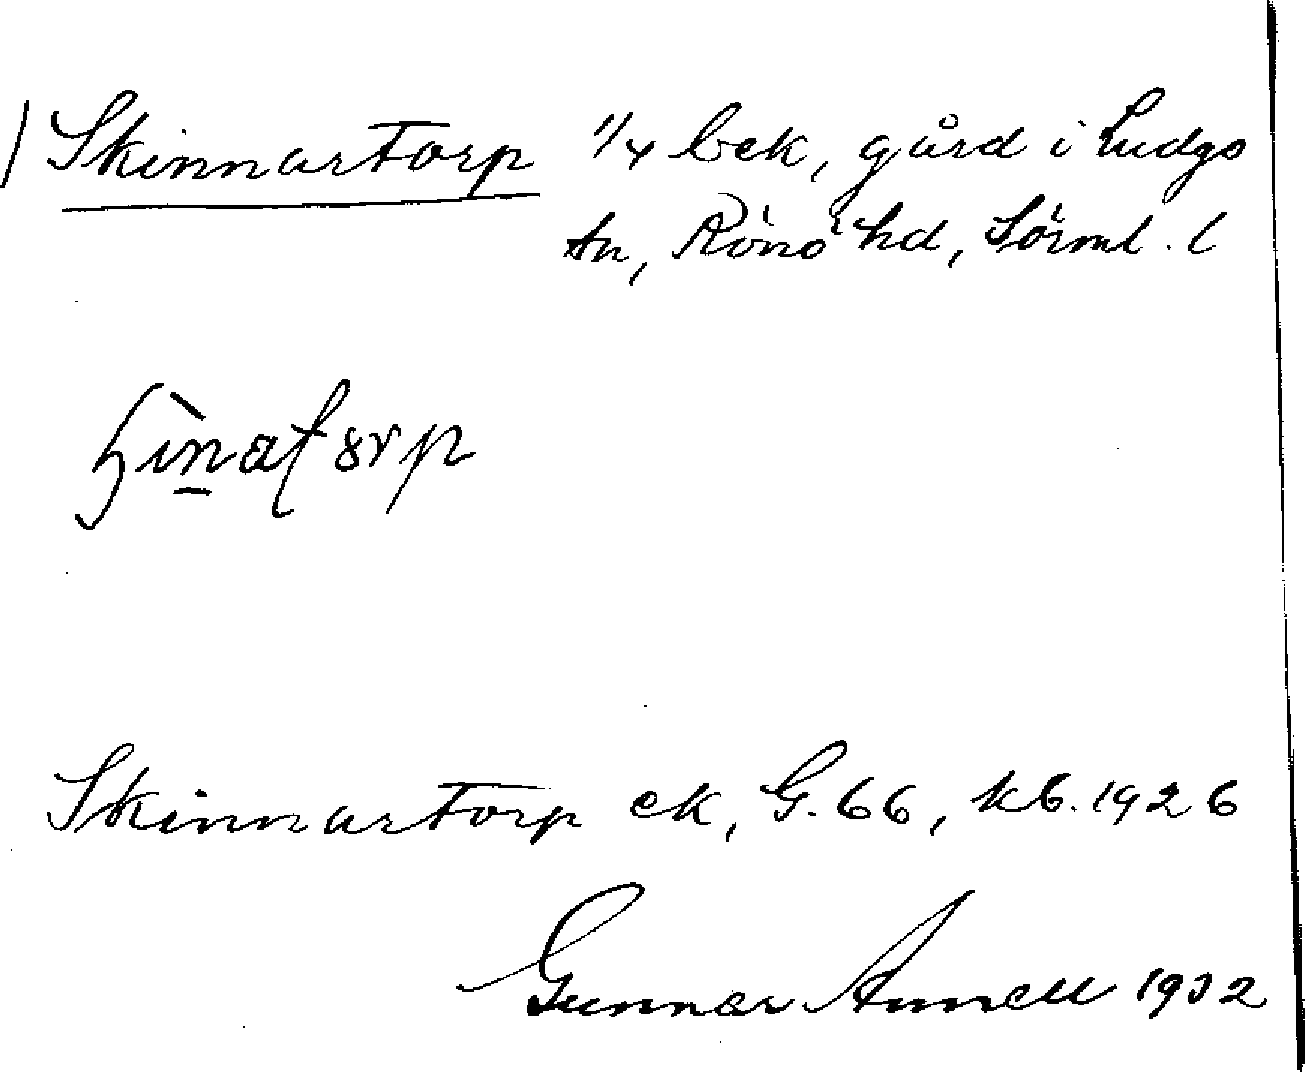 ) Skinnartorp 1/4 bek, gård i Ludgo
sn, Rönö hd, Sörml. l
Skinnartorp ek, G. 66, kb. 1926
Gunnar Annell 1932